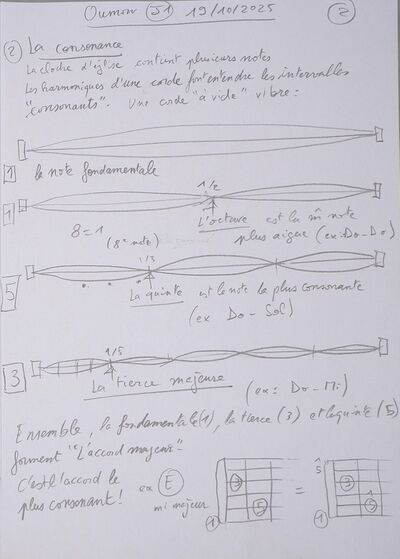 Oumou S1 19/10/2025 2
2 La consonance
La cloche d'église contient plusieurs notes
Les harmoniques d'une corde font entendre les intervalles
"consonants". Une corde "à vide" vibre:
1 la note fondamentale
1/2
1 L'octave est la m̂ note
8=1 plus aigue (ex: Do-Do)
(8e note)
1/3
5 La quinte est la note la plus consonante
(ex Do-Sol)
1/5
3 La tierce majeure (ex: Do-Mi)
Ensemble, la fondamentale (1), la tierce (3) et la quinte (5)
forment "L'accord majeur".
C'est l'accord le
plus consonant! ex E
mi majeur
3 5 1 = 5 3 1 1